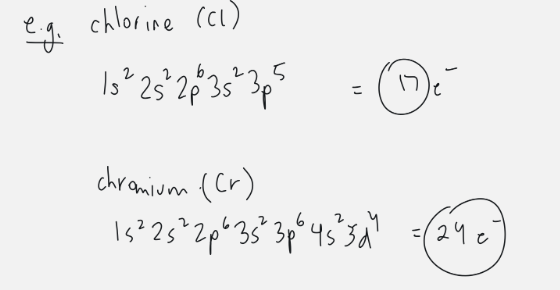 e.g. chlorine (Cl)
1s² 2s² 2p⁶ 3s² 3p⁵ = 17 e⁻
chromium (Cr)
1s² 2s² 2p⁶ 3s² 3p⁶ 4s² 3d⁴ = 24 e⁻